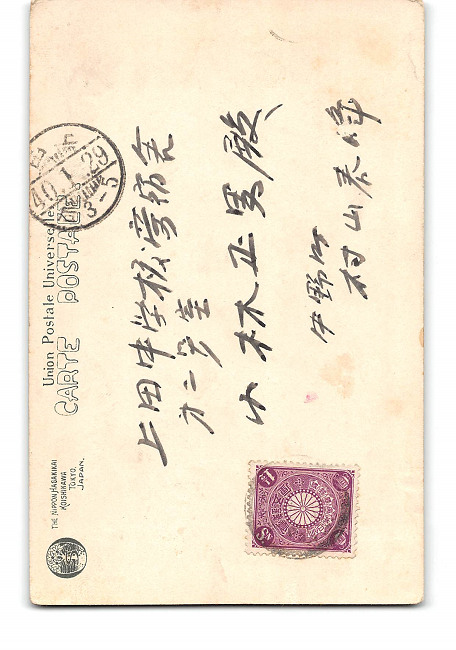 Union Postale Universelle.
CARTE POSTALE.
上田中学校寄宿舎
オ二号室
小林正男殿
中野町
村山泰
40.1.29
3-5
THE NIPPON HAGAKIKAI
KOISHIKAWA
TOKYO.
JAPAN.